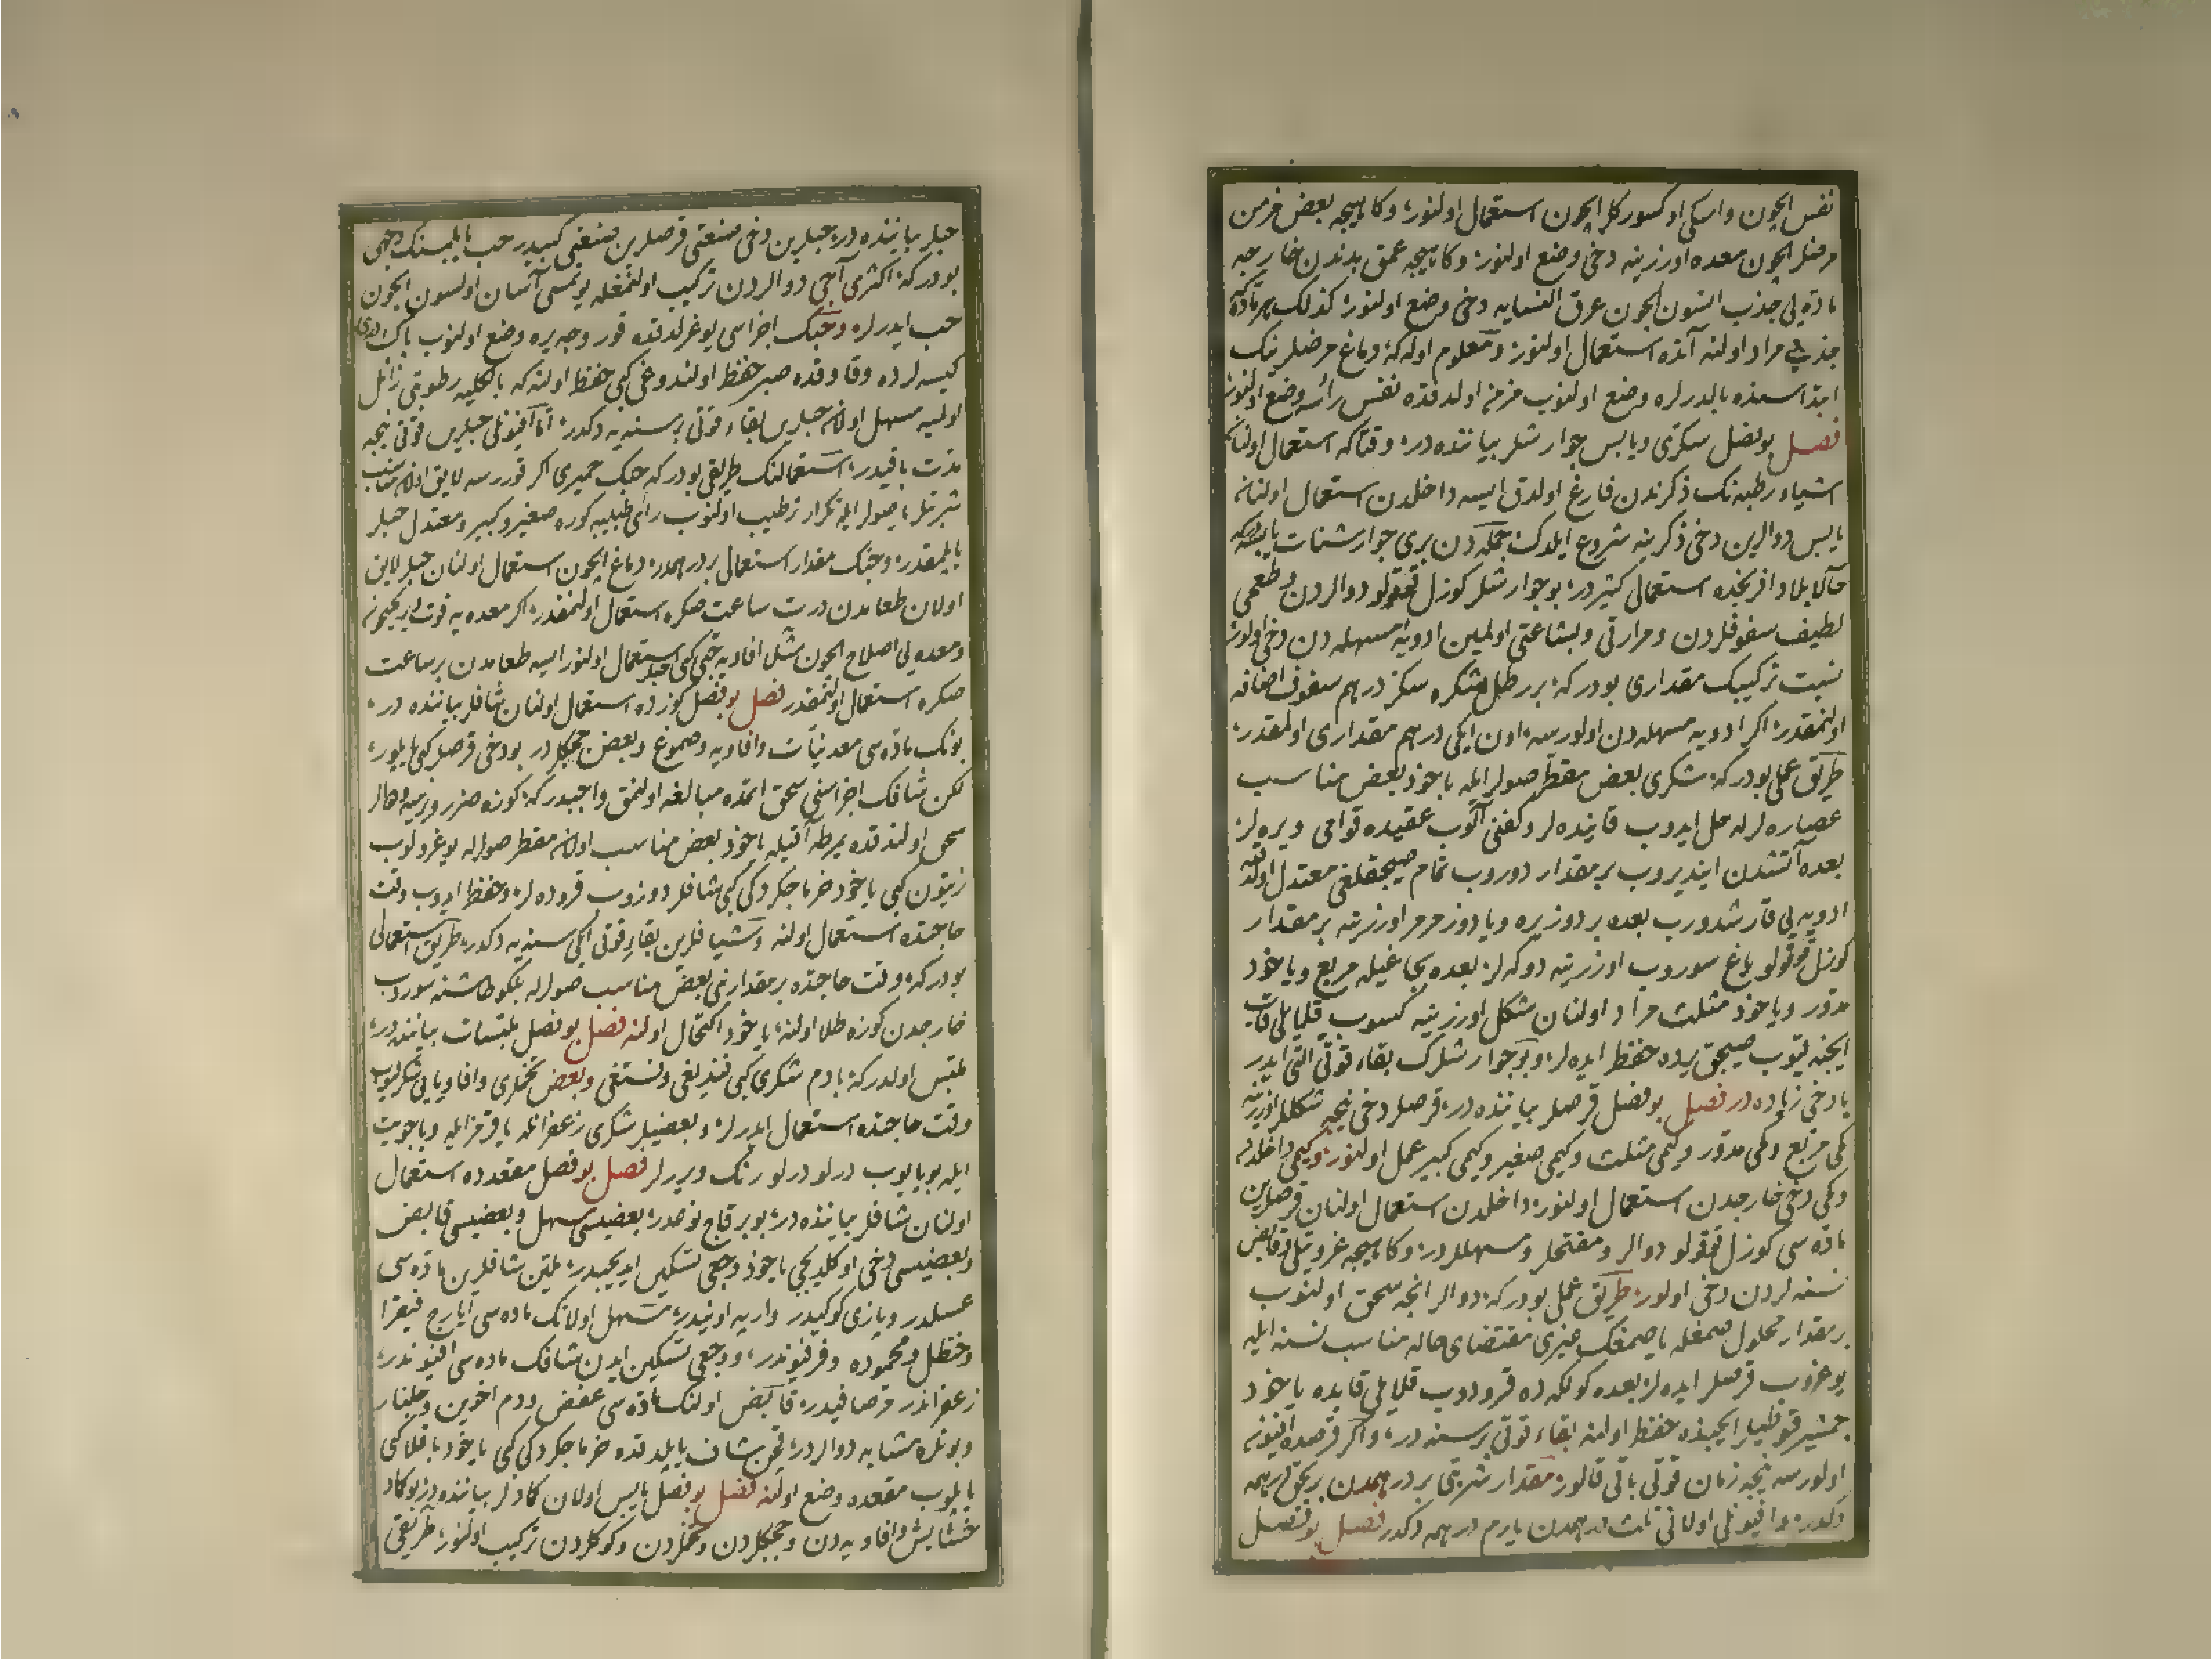 نفس ایچون واسکی اوکسورکلر ایچون استعمال اولنور، وکاهیجه بعض مزمن
مرضلر ایچون معده اوزرینه دخی وضع اولنور، وکاهیجه عمق بدندن خارجه
ماده یی جذب ایتسون ایچون عرق النسایه دخی وضع اولنور، کذلک هر ماده نک
جذبی مراد اولنه آنده استعمال اولنور، ومعلوم اوله که دماغ مرضلرینک
ابتداسنده بالدرلره وضع اولنوب مزمن اولدقده نفس رأسه وضع اولنور
فصل بو فصل سکری ویابس جوارشلر بیاننده در، وقتاکه استعمال اولنان
اشیاء رطبه نک ذکرندن فارغ اولدق ایسه داخلدن استعمال اولنان
یابس دوالرین دخی ذکرینه شروع ایلدک، جمله دن بری جوارشنات یابسه که
حالا بلاد افرنجده استعمالی کثیردر، بو جوارشلر کوزل قوقولو دوالردن وطعمی
لطیف سفوفلردن ومرارتی وبشاعتی اولمین ادویه مسهله دن دخی اولور،
نسبت ترکیبک مقداری بودرکه، بر رطل شکره سکز درهم سفوف اضافه
اولنمقدر، اکر ادویه مسهله دن اولورسه، اون ایکی درهم مقداری اولمقدر،
طریق عملی بودرکه، شکری بعض مقطر صولر ایله یاخود بعض مناسب
عصاره لرله حل ایدوب قاینده لر وکفنی آلوب عقیده قوامی ویره لر،
بعده آتشدن ایندیروب بر مقدار دوروب تمام صیجقلغی معتدل اولدقده
ادویه یی قارشدورب بعده بر دوزیره ویا دوز مرمر اوزرینه بر مقدار
کوزل قوقولو یاغ سوروب اوزرینه دوکه لر، بعده بچاغیله مربع ویاخود
مدور ویاخود مثلث مراد اولنان شکل اوزرینه کسوب قلایلی قاب
ایچنه قیوب صیجق یرده حفظ ایده لر، وبو جوارشلرک بقاء قوتی التی ایدر
یا دخی زیاده در فصل بو فصل قرصلر بیاننده در، قرصلر دخی نیجه شکللر اوزرینه
کمی مربع وکمی مدور وکیمی مثلث وکیمی صغیر وکیمی کبیر عمل اولنور، وکیمی داخلدن
وکمی دخی خارجدن استعمال اولنور، داخلدن استعمال اولنان قرصلرین
ماده سی کوزل قوقولو دوالر ومفتحلر ومسهللردر، وکاهیجه غرویتلی وقابض
نسنه لردن دخی اولور، طریق عملی بودرکه، دوالر انجه سحق اولنوب
بر مقدار محلول صمغله یا صمغک غیری مقتضای حاله مناسب نسنه ایله
یوغروب قرصلر ایده لر، بعده کولکه ده قرودوب قلایلی قابده یاخود
جمشیر قوطیلر ایچنده حفظ اولنه، بقاء قوتی بر سنه در، واکر قرصده افیون
اولورسه نیجه زمان قوتی باقی قالور، مقدار شربتی بر درهمدن بر بچق درهمه
دکدر، وافیونلی اولانی ثلث درهمدن یارم درهمه دکدر فصل بو فصل
حبلر بیاننده در، حبلرین دخی منفعتی قرصلرین منفعتی کبیدر حب یاپلمسنک وجهی
بودرکه، اکثری آجی دوالردن ترکیب اولنمغله یوتمسی آسان اولسون ایچون
حب ایدرلر، وحبک اجزاسی یوغرلدقده قورو جه یره وضع اولنوب پاک دری
کیسه لرده وقاوقده صبر حفظ اولندوغی کبی حفظ اولنه که بالکلیه رطوبتی زائل
اولمیه مسهل اولان حبلرین بقاء قوتی بر سنه یه دکدر، اما افیونلی حبلرین قوتی نیجه
مدت باقیدر، استعمالنک طریقی بودرکه حبک خمیری اکر قورورسه لایق اولان مناسب
شربتلر یا صولر ایله تکرار ترطیب اولنوب رأی طبیبه کوره صغیر وکبیر ومعتدل حبلر
یاپلمقدر، وحبک مقدار استعمالی بر درهمدر، دماغ ایچون استعمال اولنان حبلر لابق
اولان طعامدن درت ساعت صکره استعمال اولنمقدر، اکر معده یه قوت ویرمک ایچون
ومعده یی اصلاح ایچون مثلا افاویه حبی کبی حبلر استعمال اولنور ایسه طعامدن بر ساعت
صکره استعمال اولنمقدر فصل بو فصل کوزده استعمال اولنان شافلر بیاننده در،
بونک ماده سی معدنیات وافاویه وصموغ وبعض چیچکلردر بو دخی قرصلر کبی یاپلور،
لکن شافک اجزاسنی سحق اتمده مبالغه اولنمق واجبدر که، کوزه ضرر ویرمیه لر، دوالر
سحق اولندقده یمرطه آقیله یاخود بعض مناسب اولان مقطر صولرله یوغرولوب
زیتون کبی یاخود خرما جکردکی کبی شافلر دوزوب قروده لر، وحفظ ایدوب وقت
حاجتده استعمال اولنه وشیافلرین بقاء قوتی ایکی سنه یه دکدر، طریق استعمالی
بودرکه، وقت حاجتده بر مقدارینی بعض مناسب صولرله بلکو طاشنه سوروب
خارجدن کوزه طلا اولنه، یاخود اکتحال اولنه فصل بو فصل ملبسات بیاننده در،
ملبس اولدرکه، بادم شکری کبی فندیغی وفستغی وبعض تخملری وافاویه یی شکرلیوب
وقت حاجتده استعمال ایدرلر، وبعضیلر شکری زعفرانله یا قرمز ایله ویا جویت
ایله بویایوب درلو درلو رنک ویررلر فصل بو فصل مقعدده استعمال
اولنان شافلر بیاننده در، بو بر قاج نوعدر، بعضیسی مسهل وبعضیسی قابض
وبعضیسی دخی اوکلدیجی یاخود وجعی تسکین ایدیجیدر، ملین شافلرین ماده سی
عسلدر ویازی کوکیدر واریه اونیدر، مسهل اولانک ماده سی ایارج فیقرا
وحنظل ومحموده وفرفیوندر، ووجعی تسکین ایدن شافک ماده سی افیوندر،
زعفراندر مرصافیدر، قابض اولنک ماده سی عفص ودم اخوین وجلنار
وبونلره مشابه دوالردر، قچن شاف یاپلدقده خرما جکردکی کبی یاخود باقلا کبی
یاپلوب مقعده وضع اولنه فصل بو فصل یابس اولان کمادلر بیاننده در، بو کماد
حشایش وافاویه دن وچیچکلردن وتخملردن وکوکلردن ترکیب اولنور، طریقی